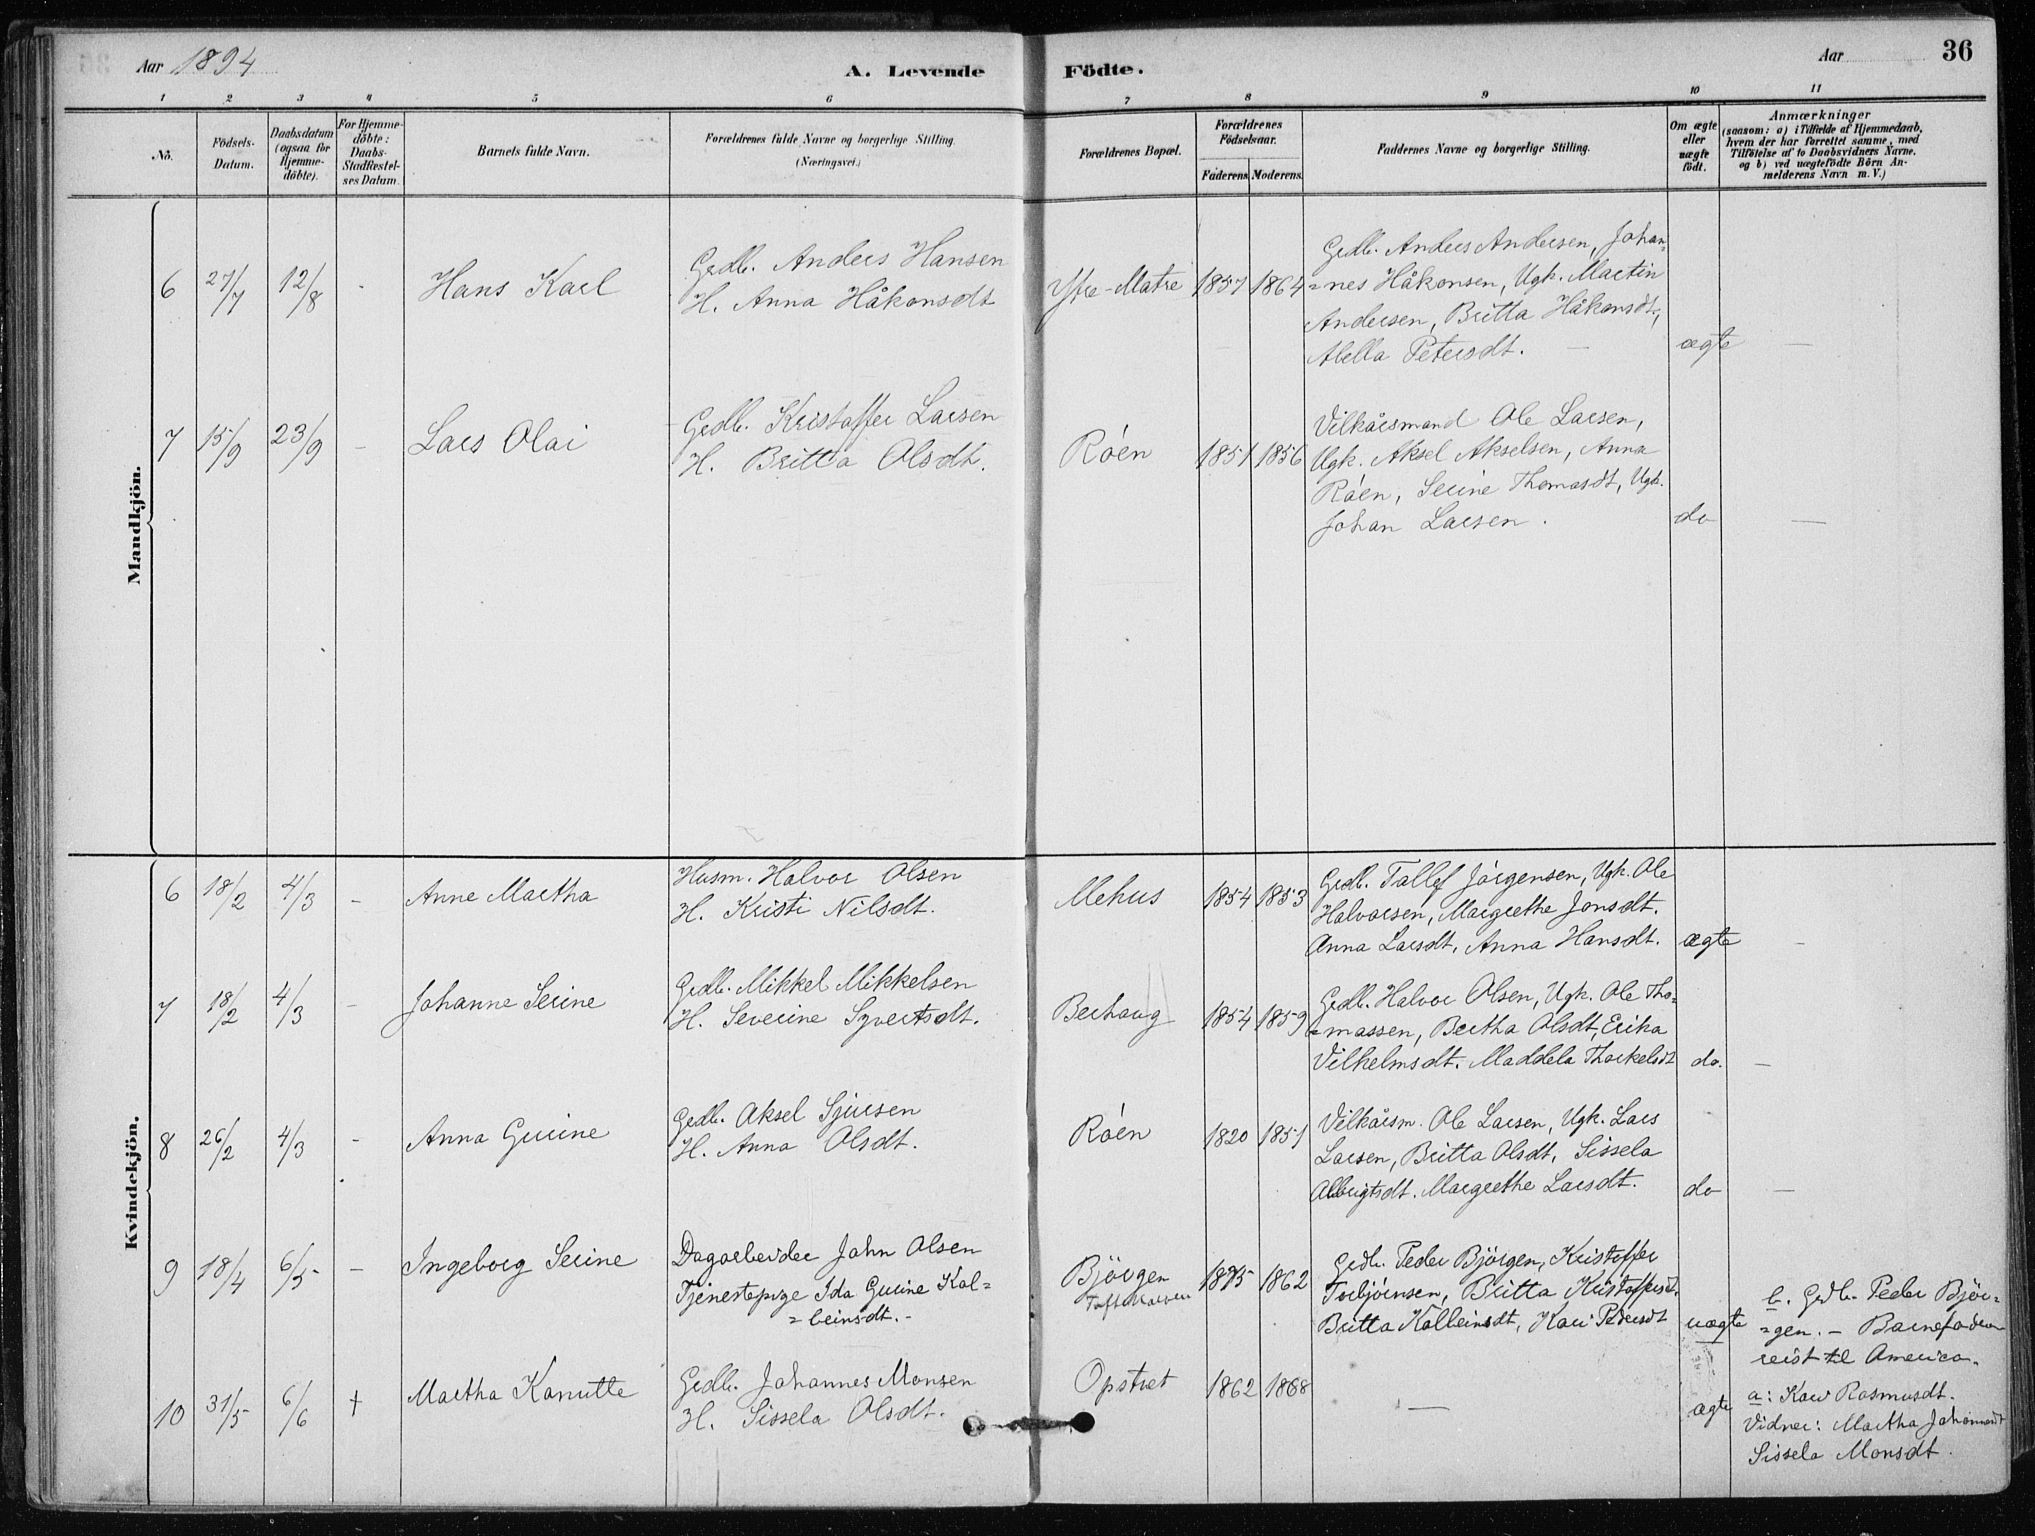 Aar 1894
A. Levende Födte.
Aar
36
1 2 3 4 5 6 7 8 9 10 11
Nö.
Födsels-Datum.
Daabsdatum (ogsaa för Hjemmedöbte).
For Hjemmedöbte: Daabs-Stadfæstelses Datum.
Barnets fulde Navn.
Forældrenes fulde Navne og borgerlige Stilling. (Næringsvei.)
Forældrenes Bopæl.
Forældrenes Födselsaar.
Faderens. Moderens.
Faddernes Navne og borgerlige Stilling.
Om ægte eller uægte födt.
Anmærkninger
(saasom: a) i Tilfælde af Hjemmedaab, hvem der har forrettet samme, med Tilföielse af to Daabsvidners Navne. og b) ved uægtefödte Börn Anmelderens Navn m. V.)
Mandkjön.
6 27/7 12/8 - Hans Karl
Grdb. Anders Hansen
H. Anna Håkonsdt
Yfre-Matre 1857 1864
Grdb. Anders Andersen, Johan=
=nes Håkonsen, Ugk. Martin
Andersen, Britta Håkonsdt,
Abella Petersdt. —
ægte —
7 15/9 23/9 - Lars Olai
Grdb. Kristoffer Larsen
H. Britta Olsdt.
Róen 1851 1856
Vilkårsmand Ole Larsen,
Ugk. Aksel Akselsen, Anna
Róen, Serine Thomasdt, Ugk.
Johan Larsen.
do —
Kvindekjön.
6 18/2 4/3 - Anne Martha
Husm. Halvor Olsen
H. Kristi Nilsdt.
Mehus 1854 1853
Grdb. Tallef Jörgensen, Ugk. Ole
Halvorsen, Margrethe Jonsdt.
Anna Larsdt, Anna Hansdt.
ægte -
7 18/2 4/3 - Johanne Serine
Grdb. Mikkel Mikkelsen
H. Severine Syvertsdt.
Berhaug 1854 1859
Grdb. Halvor Olsen, Ugk. Ole Tho=
=massen, Bertha Olsdt, Erika
Vilhelmsdt. Maddela Thorkelsdt
do. -
8 26/2 4/3 - Anna Gurine
Grdb. Aksel Sjursen
H. Anna Olsdt.
Róen 1820 1851
Vilkårsm. Ole Larsen, Ugk. Lars
Larsen, Britta Olsdt, Sissela
Albrigtsdt. Margrethe Larsdt.
do -
9 18/4 6/5 - Ingeborg Serine
Dagarbeider John Olsen
Tjenestepige Ida Gurine Kol=
=beinsdt. -
Björgen
1875 1862
Grdb. Peder Bjørgen, Kristoffer
Torbjörnsen, Britta Kristoffersd.
Britta Kolbeinsdt, Kari Pedersdt
uægte
b. Grdb. Peder Björ=
=gen. - Barnefaderen
reist til America.
10 31/5 6/6 † Martha Kanutte
Grdb. Johannes Monsen
H. Sissela Olsdt.
Opstret 1862 1868
—
ægte
a: Kari Rasmusdt.
Vidner: Martha Johannesdt
Sissela Monsdt.